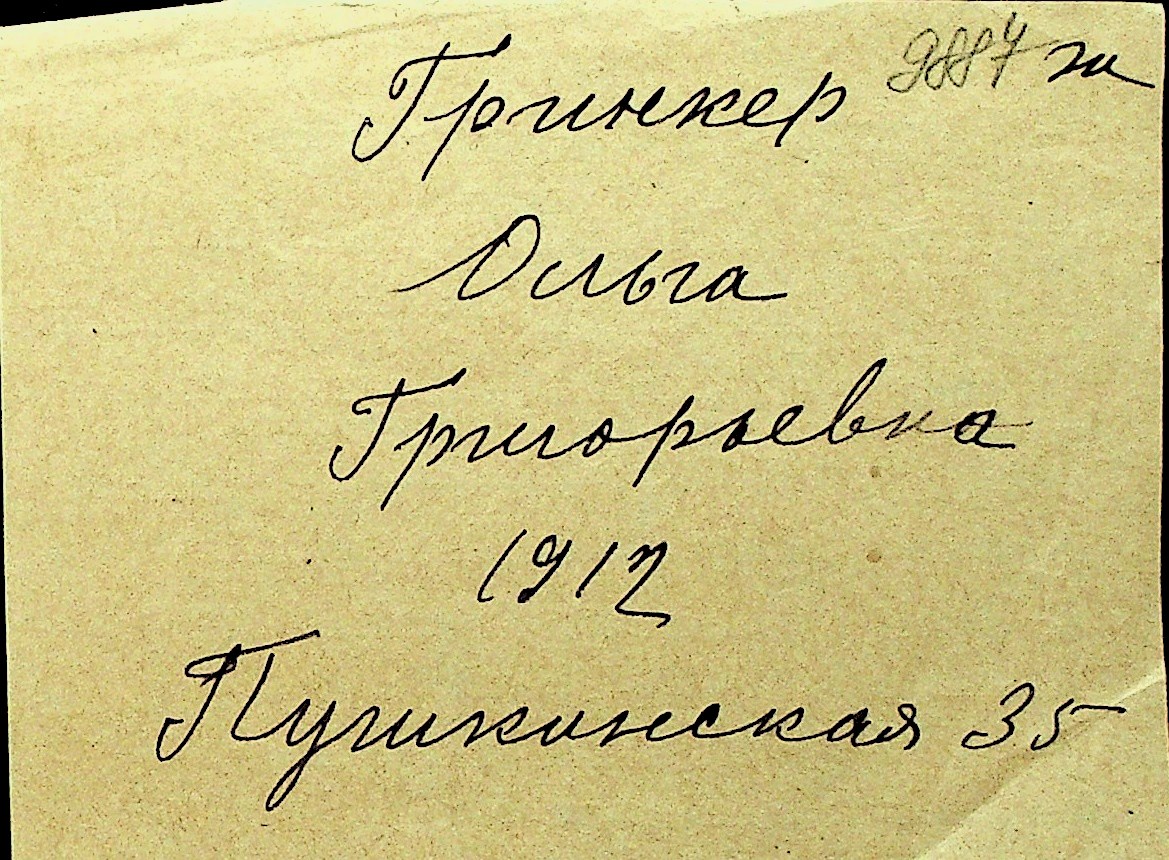 Гринкер 9887 ж
Ольга
Григорьевна
1912
Пушкинская 35